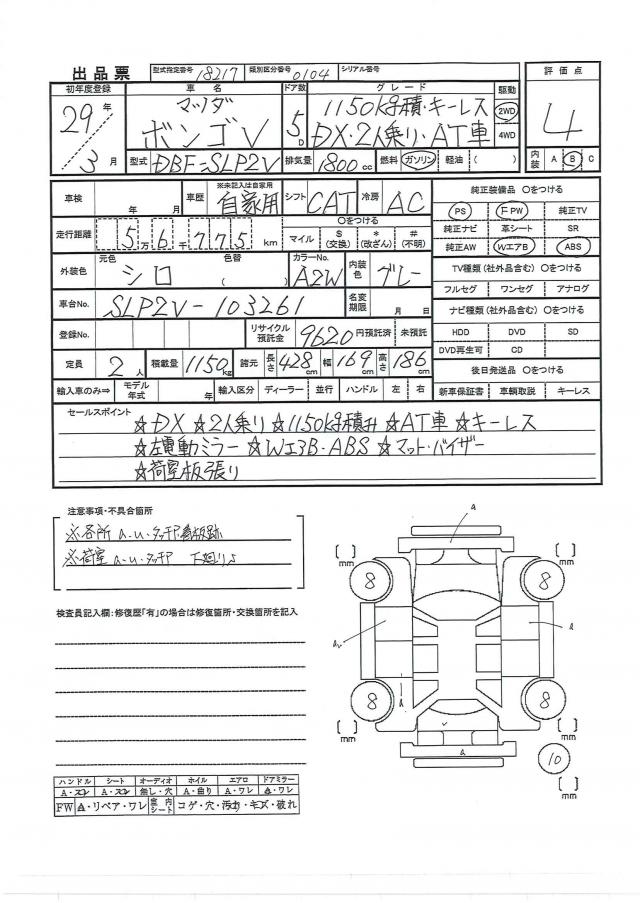 出品票 型式指定番号 18217 類別区分番号 0104 シリアル番号
初年度登録 車名 ドア数 グレード 駆動 評価点
29年 マツダ 5D 1150kg積・キーレス 2WD 4
3月 ボンゴV DX・2人乗り・AT車 4WD
型式 DBF-SLP2V 排気量 1800cc 燃料 ガソリン 軽油 ( ) 内装 A B C
車検 年 月 車歴 ※未記入は自家用 自家用 シフト CAT 冷房 AC 純正装備品 〇をつける
走行距離 5万6千775km 〇をつける マイル $(交換) *(改ざん) #(不明) PS PW 純正TV
純正ナビ 革シート SR
外装色 元色 シロ 色替 ( ) カラーNo. A2W 内装色 グレー 純正AW WエアB ABS
TV種類(社外品含む) 〇をつける
車台No. SLP2V-103261 名変期限 月 日 フルセグ ワンセグ アナログ
ナビ種類(社外品含む) 〇をつける
登録No. リサイクル預託金 9620円預託済 未預託 HDD DVD SD
DVD再生可 CD
定員 2人 積載量 1150kg 諸元 長さ 428cm 幅 169cm 高さ 186cm 後日発送品 〇をつける
輸入車のみ⇒ モデル年式 年 輸入区分 ディーラー 並行 ハンドル 左 右 新車保証書 車輌取説 キーレス
セールスポイント
☆DX ☆2人乗り ☆1150kg積み ☆AT車 ☆キーレス
☆左電動ミラー ☆WエアB・ABS ☆マット・バイザー
☆荷室板張り
注意事項・不具合箇所
※各所 a.u.タッチP
※荷室 a.u.タッチP 下廻りS
検査員記入欄:修復歴「有」の場合は修復箇所・交換箇所を記入
a
[ ] mm 8 8 [ ] mm
a
[ ] mm 8 8 [ ] mm
a
10
[ ] mm
ハンドル シート オーディオ ホイル エアロ ドアミラー
A・スレ A・スレ 無し・穴 A・曲り A・ワレ A・ワレ
FW A・リペア・ワレ 室内シート コゲ・穴・汚れ・キズ・破れ